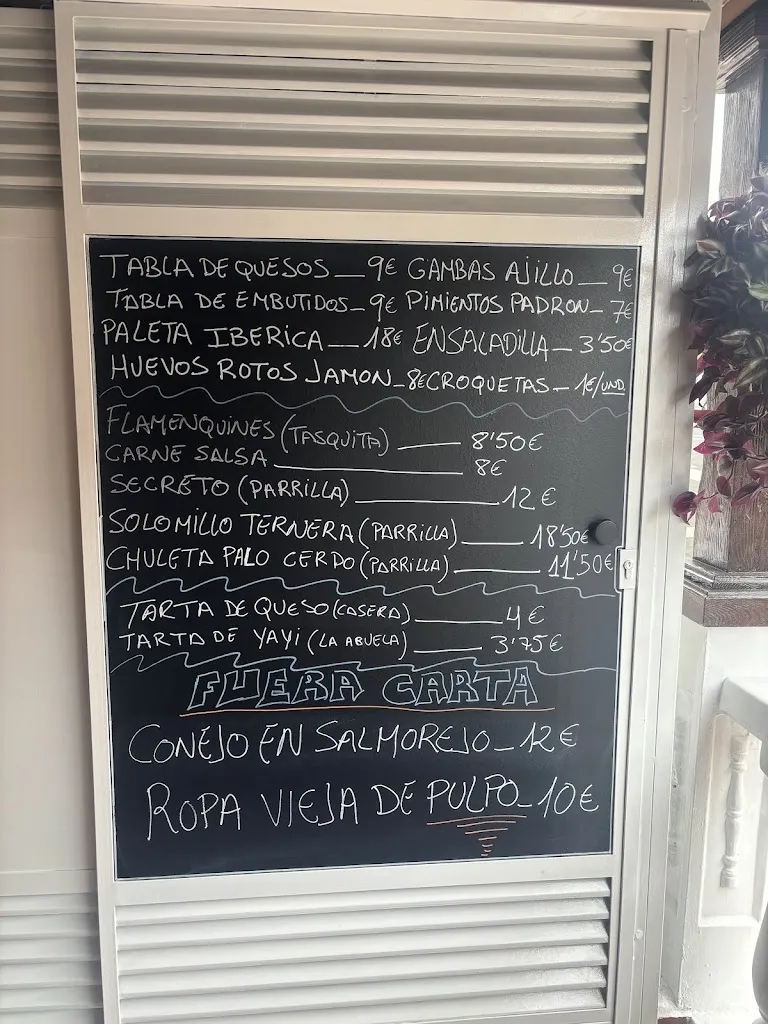 TABLA DE QUESOS __ 9€ GAMBAS AJILLO __ 9€
TABLA DE EMBUTIDOS _ 9€ PIMIENTOS PADRON _ 7€
PALETA IBERICA __ 18€ ENSALADILLA _ 3'50€
HUEVOS ROTOS JAMON _ 8€ CROQUETAS _ 1€/UND
FLAMENQUINES (TASQUITA) ____ 8'50€
CARNE SALSA ____ 8€
SECRETO (PARRILLA) ____ 12€
SOLOMILLO TERNERA (PARRILLA) ____ 18'50€
CHULETA PALO CERDO (PARRILLA) ____ 11'50€
TARTA DE QUESO (CASERA) ____ 4€
TARTA DE YAYI (LA ABUELA) ____ 3'75€
FUERA CARTA
CONEJO EN SALMOREJO _ 12€
ROPA VIEJA DE PULPO _ 10€